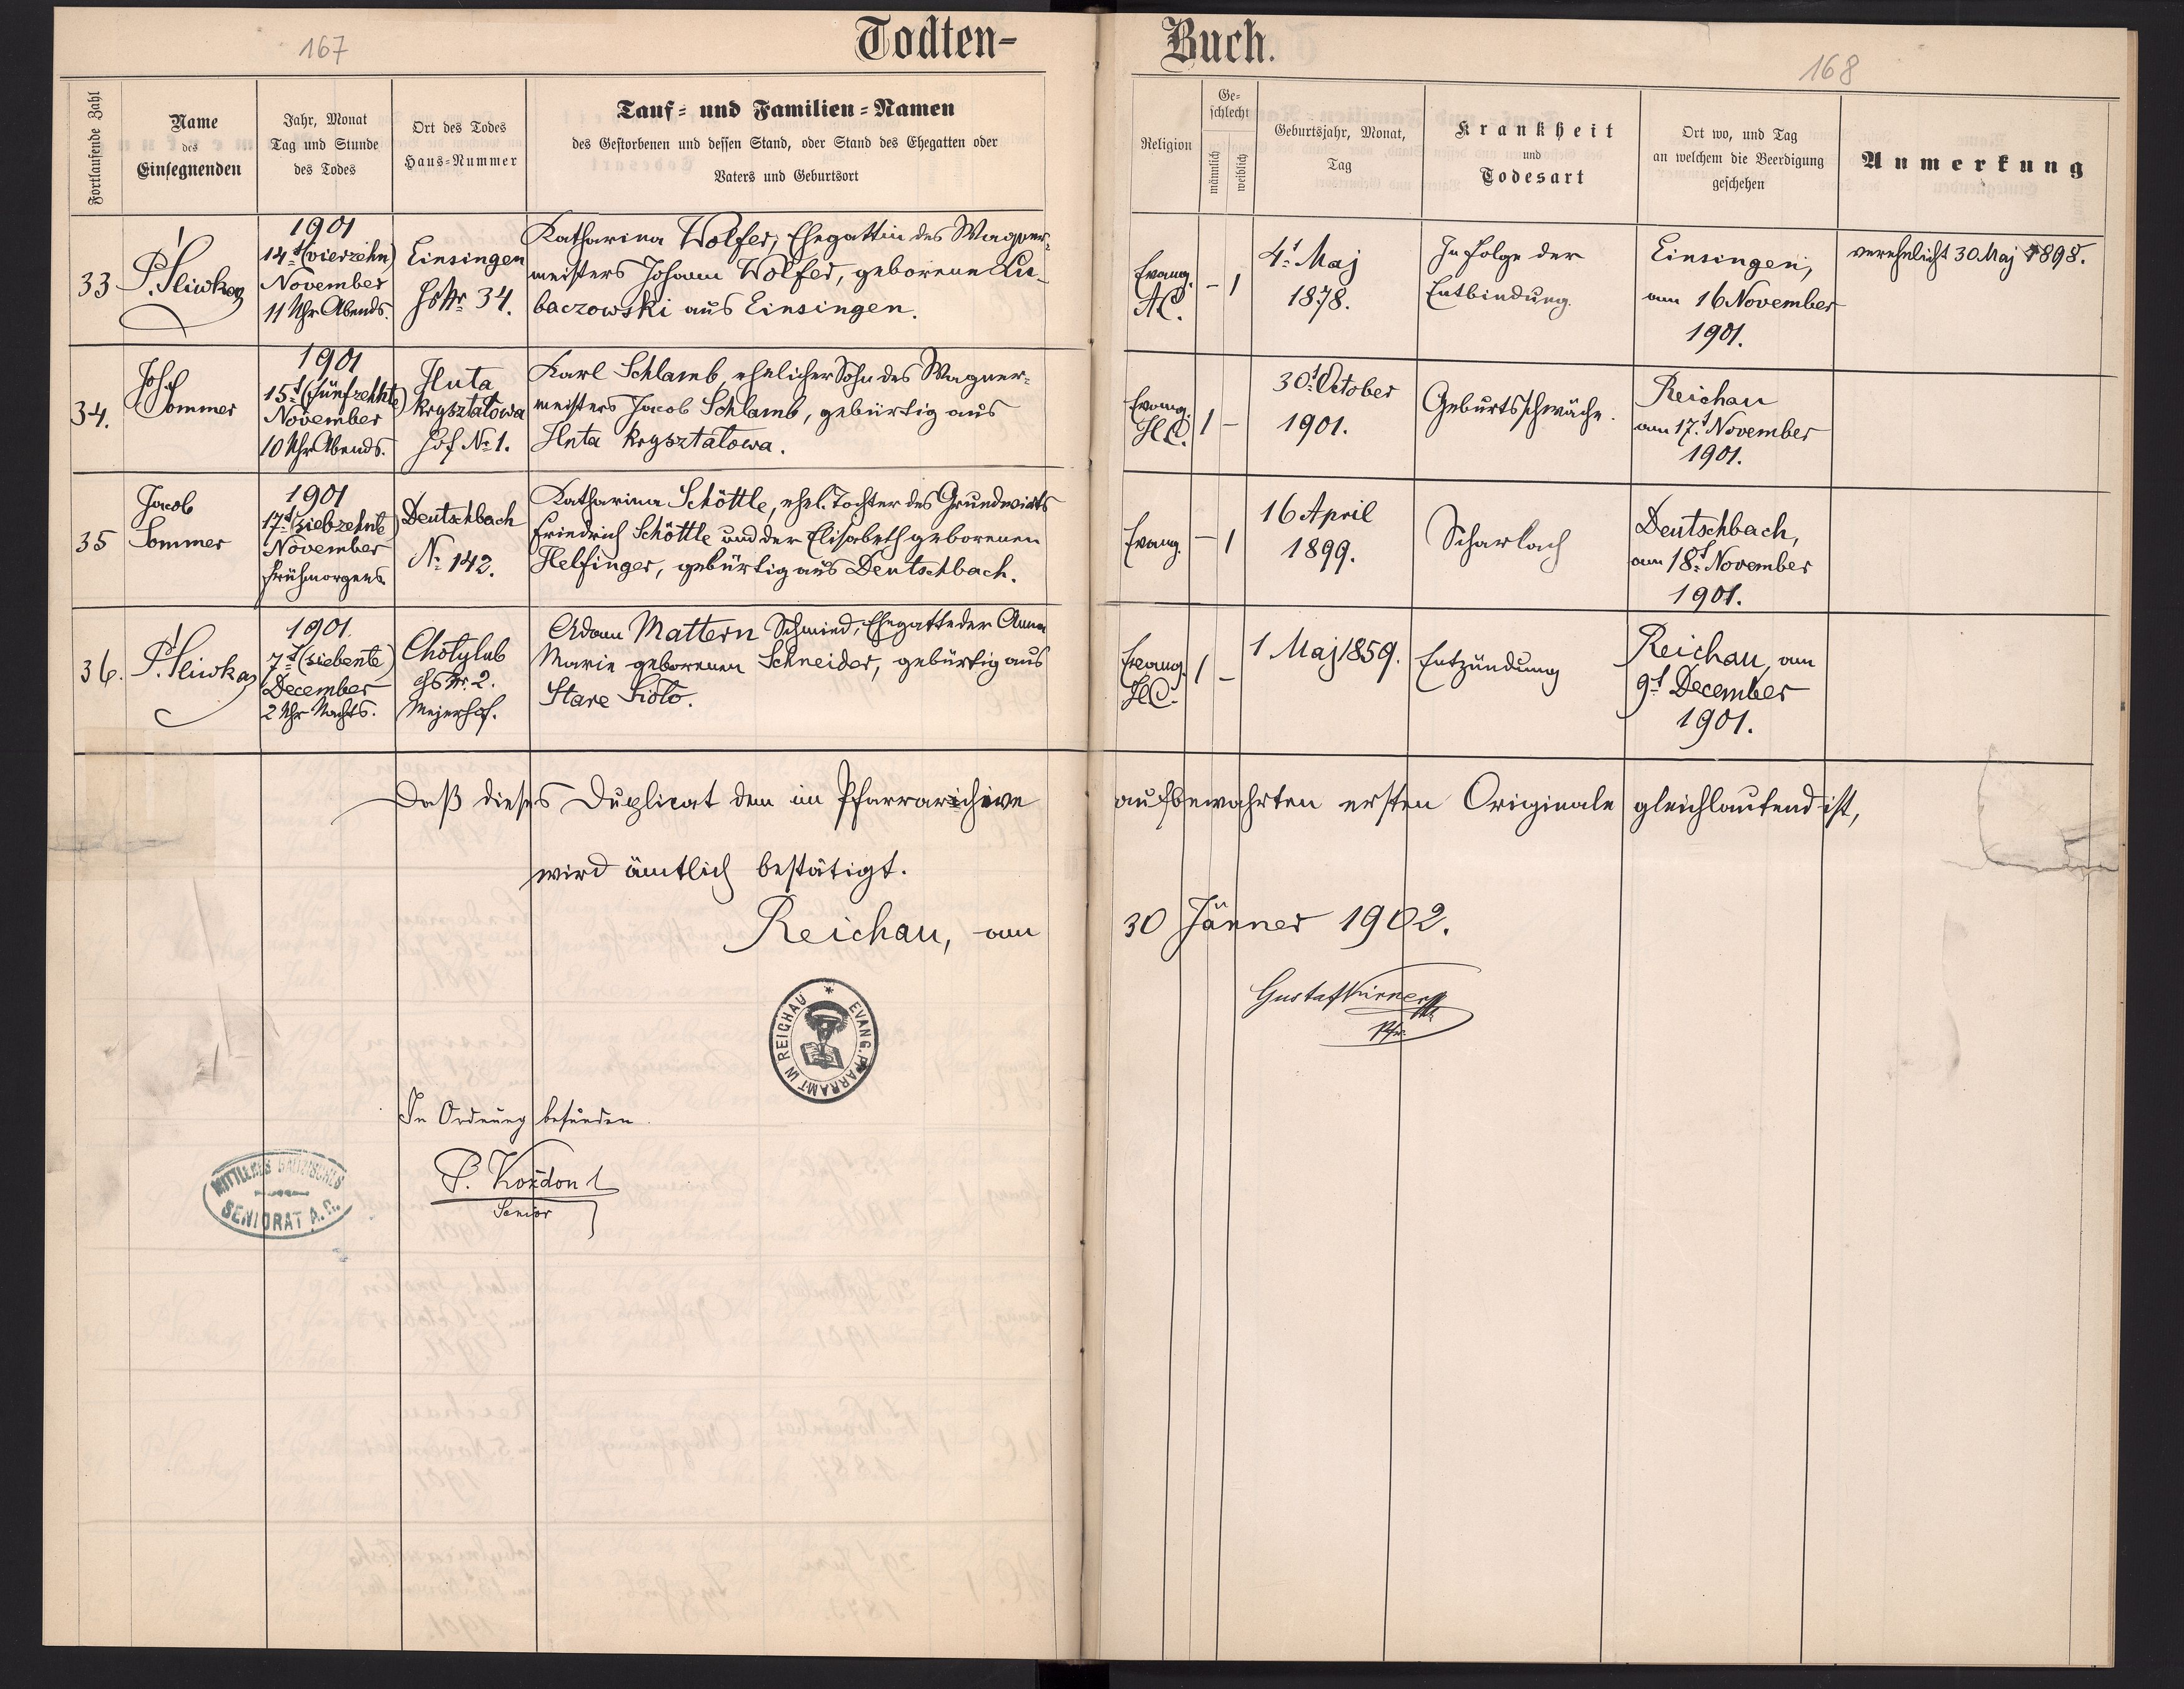 167
Todten-
Buch.
168
Fortlaufende Zahl
Name
des
Einsegnenden
Jahr, Monat
Tag und Stunde
des Todes
Ort des Todes
Haus-Nummer
Tauf- und Familien-Namen
des Gestorbenen und dessen Stand, oder Stand des Ehegatten oder
Vaters und Geburtsort
Religion
Ge-
schlecht
männlich
weiblich
Geburtsjahr, Monat,
Tag
Krankheit
und
Todesart
Ort wo, und Tag
an welchem die Beerdigung
geschehen
Anmerkung
33
P. Sliwka
1901
14t (vierzehn)
November
11 Uhr Abends.
Einsingen
HsNr. 34.
Katharina Wolfer, Ehegattin des Wagner-
meisters Johann Wolfer, geborene Lu-
baczowski aus Einsingen.
Evang.
A.C.
- 1
4t Maj
1878.
In Folge der
Entbindung.
Einsingen,
am 16 November
1901.
verehelicht 30 Maj 1898.
34.
Joh
Sommer
1901
15t (fünfzehnte)
November
10 Uhr Abends.
Huta
kryształowa
Hof No 1.
Karl Schlamb, ehelicher Sohn des Wagner-
meisters Jacob Schlamb, gebürtig aus
Huta Kryształowa.
Evang.
H.C.
1 -
30t October
1901.
Geburtsschwäche.
Reichau
am 17t November
1901.
35
Jacob
Sommer
1901
17t (siebzehnte)
November
frühmorgens
Deutschbach
No 142.
Katharina Schöttle, ehel. Tochter des Grundwirts
Friedrich Schöttle und der Elisabeth geborenen
Helfinger, gebürtig aus Deutschbach.
Evang.
- 1
16 April
1899.
Scharlach
Deutschbach,
am 18t November
1901.
36.
P. Sliwka
1901.
7t (siebente)
December
2 Uhr Nachts.
Chotylub
HsNr. 2.
Mejerhof.
Adam Mattern Schmied, Ehegatte der Anna
Marie geborenen Schneider, gebürtig aus
Stare Sioło.
Evang.
H.C.
1 -
1 Maj 1859.
Entzündung
Reichau, am
9t December
1901.
Daß dieses Duplicat dem im Pfarrarichive aufbewahrten ersten Originale gleichlautend ist,
wird ämtlich bestätigt.
Reichau, am 30 Jänner 1902.
Gustaf Kirner
Pfr.
* EVANG. PFARRAMT IN REICHAU
In Ordnung befunden.
P. Kożdon
Senior
MITTLERES GALIZISCHES
SENIORAT A. C.